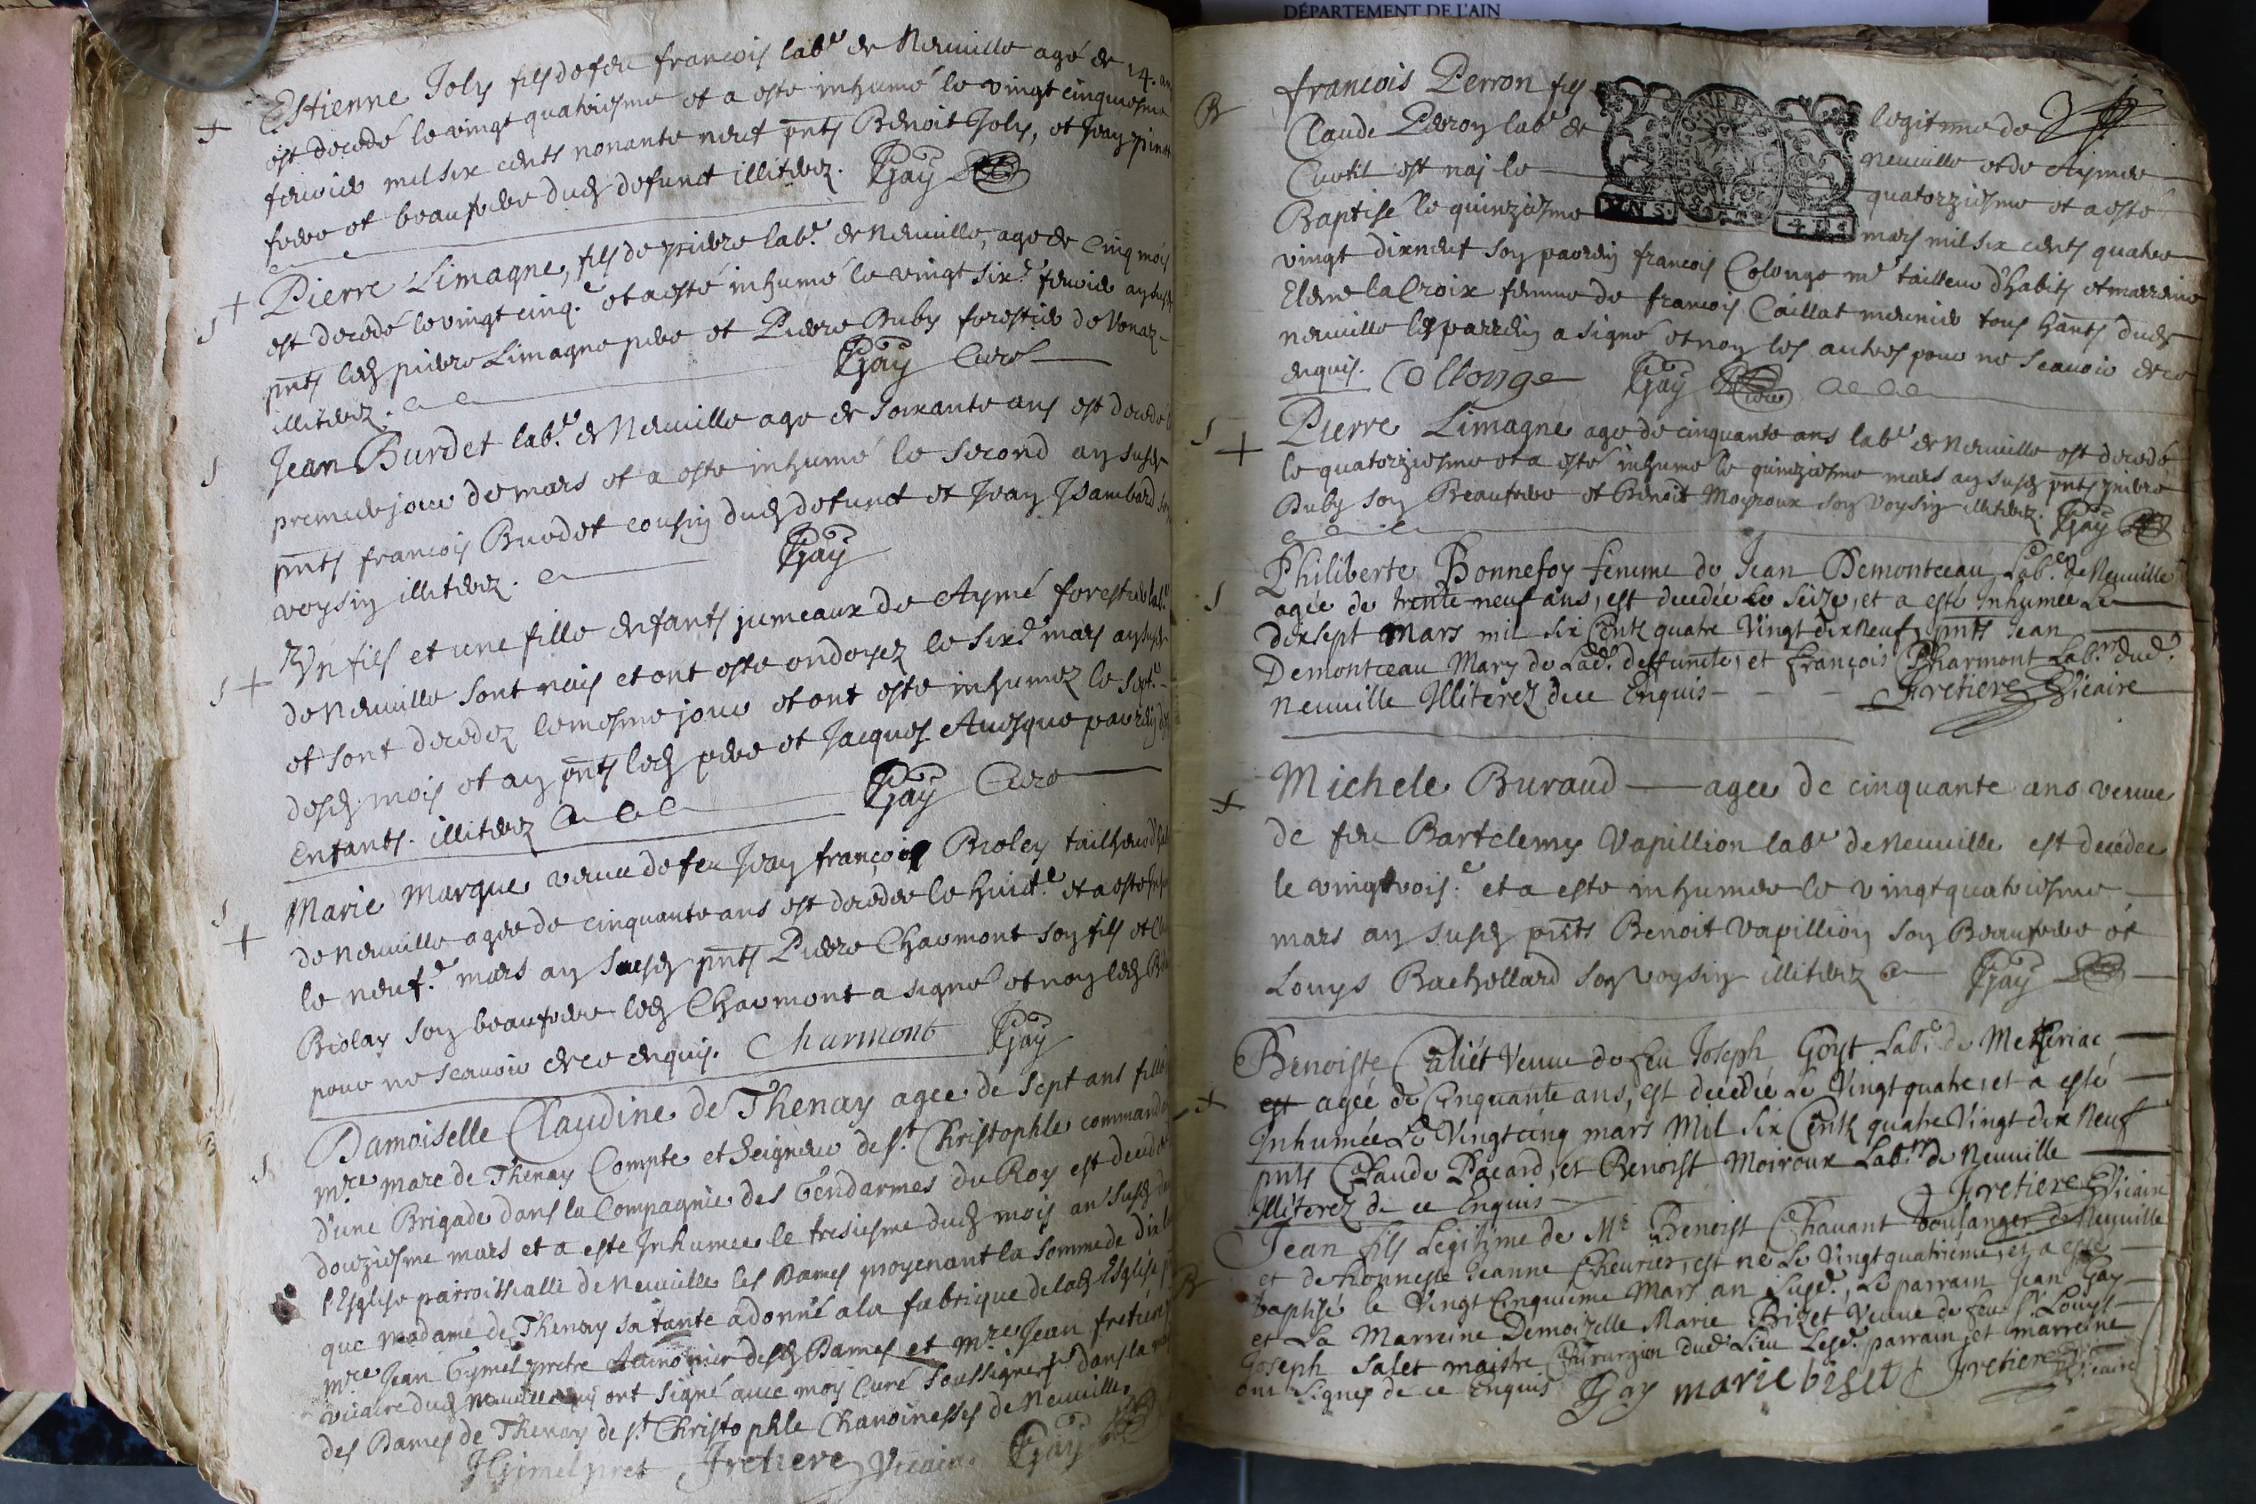 Estienne Joly fils de feu francois lab.r de Neuville agé de 24. an
est decedé le vingt quatriesme et a esté inhumé le vingt cinquiesme
fevrier mil six cents nonante neuf pnts Benoit Joly, et Jean
frere et beaufrere dud defunct illiterez. Gay
Pierre Limagne, fils de pierre lab.r de Neuville, agé de cinq mois
est decedé le vingt cinq.e et a esté inhumé le vingt six.e fevrier an susd
pnts led pierre Limagne pere et Pierre Buby forestier de Vonaz
illiterez. Gay Curé
Jean Burdet lab.r de Neuville agé de soixante ans est decedé
premier jour de mars et a esté inhumé le second an susd
pnts francois Burdet cousin dud defunct et Jean Isambard son
voysin illiterez. Gay
Un fils et une fille enfants jumeaux de Aymé forestier lab.r
de Neuville sont nais et ont esté ondoyez le six.e mars an susd
et sont decedez le mesme jour et ont esté inhumez le sept.e
desd mois et an pnts led pere et Jacques Avesque parrin des
enfants. illiterez Gay Curé
Marie Marque veuve de feu Jean françois Broley tailheur
de Neuville agée de cinquante ans est decedée le huict.e et a esté
le neuf.e mars an susd pnts Pierre Charmont son fils et
Biolay son beaufrere led Charmont a signé et non led
pour ne scavoir de ce enquis. Charmont Gay
Damoiselle Claudine de Thenay agee de sept ans fille
m.re marc de Thenay Compte et Seigneur de s.t Christophle command
d'une Brigade dans la Compagnie des Gendarmes du Roy est decedée
douziesme mars et a este Inhumee le tresiesme dud mois an susd
l'Esglise parroissialle de Neuville les Dames moyenant la somme de dix
que madame de Thenay sa tante a donné a la fabrique de lad Esglise
m.re Jean Gymel pretre Aumonier desd Dames et m.re Jean fretiere
vicaire dud Neuville qui ont signé avec moy Curé soussigné dans la
des Dames de Thenay de s.t Christophle Chanoinesses de Neuville
JGimel pret Fretiere Vicaire Gay
DÉPARTEMENT DE L'AIN
francois Perron fils legitime de
Claude Perron lab.r de Neuville et de Aymée
Curtil est nay le quatorziesme et a esté
Baptisé le quinziesme mars mil six cents quatre
vingt dixneuf son parrin francois Colonge m.e tailleur d'habits et marreine
Elene la Croix femme de francois Caillat meunier tous hants dud
neuville led parrein a signé et non les autres pour ne scavoir de ce
enquis. Collonge Gay Curé
Pierre Limagne agé de cinquante ans lab.r de Neuville est decedé
le quatorziesme et a esté inhumé le quinziesme mars an susd pnts pierre
Buby son Beaufrere et Benoit Moyroux son voysin illiterez. Gay
Philiberte Bonnefoy femme de Jean Demontceau Lab.r de Neuville
agée de trente neuf ans, est decedée Le Seize, et a esté Inhumée Le
dixsept Mars mil six Centz quatre Vingt dix Neuf pnts Jean
Demontceau Mary de Lad.e deffuncte, et François Charmont Lab.r dud.
Neuville Illiterez de ce Enquis - - - Fretiere Vicaire
Michele Buraud agee de cinquante ans veuve
de feu Bartelemy Vapillion lab.r de Neuville est decedee
le vingtrois.e et a este inhumee le vingtquatriesme
mars an susd pnts Benoit Vapillion son Beaufrere et
Louys Bachellard son voysin illiterez Gay
Benoiste Caliet Veuve de feu Joseph Goyt Lab.r de Mezeriac
est agée de Cinquante ans, est decedée Le Vingt quatre, et a esté
Inhumée Le Vingtcinq mars Mil six Centz quatre Vingt dix Neuf
pnts Claude Pacard, et Benoist Moiroux Lab.rs de Neuville
Illiterez de ce Enquis Fretiere Vicaire
Jean fils Legitime de M.e Benoist Chavant boulanger de Neuville
et de honneste Jeanne Cheurier, est né Le Vingt quatrieme, et a esté
baptisé le Vingt Cinquieme Mars an Susd., Le parrain Jean Gay
et La Marreine Demoizelle Marie Brizet Veuve de feu S.r Louys
Joseph Salet maistre Chirurgien dud. Lieu Lesd. parrain et marreine
ont signés de ce Enquis Gay marie biset Fretiere Vicaire